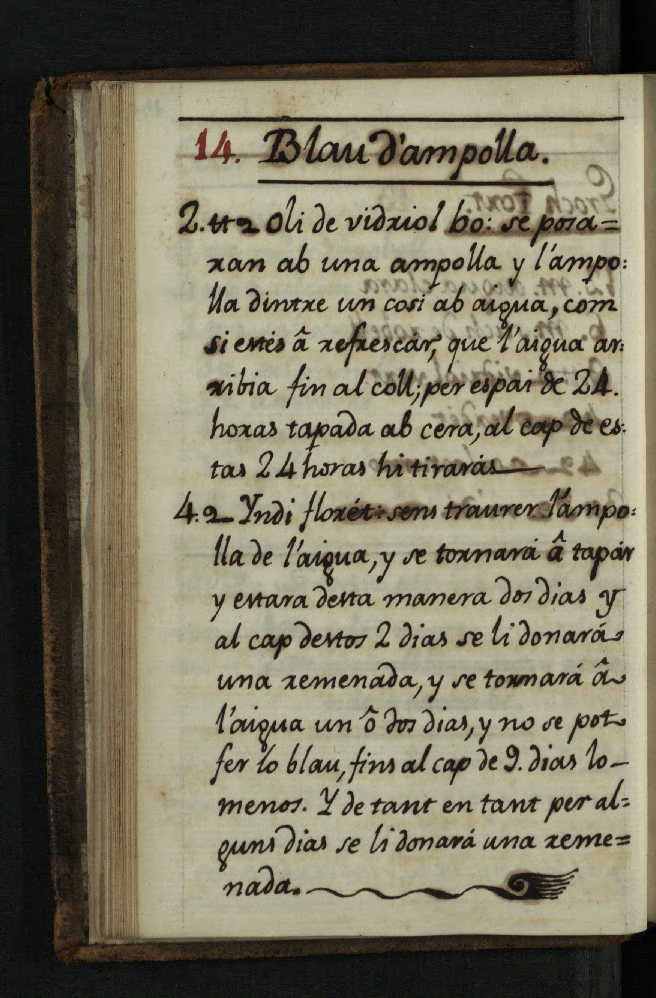 14. Blau d'ampolla.
2. ℔ Oli de vidriol bo: se posa=
ran ab una ampolla y l'ampo:
lla dintre un cosi ab aigua, com
si estés â refrescar, que l'aigua ar:
ribia fin al coll; per espai de 24.
horas tapada ab cera, al cap de es:
tas 24 horas hi tirarás
4. Yndi florét: sens traurer l'ámpo:
lla de l'aigua, y se tornará â tapár
y estara desta manera dos dias y
al cap destos 2 dias se li donará
una remenada, y se tornará â
l'aigua un ô dos dias, y no se pot
fer lo blau, fins al cap de 9. dias lo
menos. Y de tant en tant per al=
guns dias se li donará una reme=
nada.